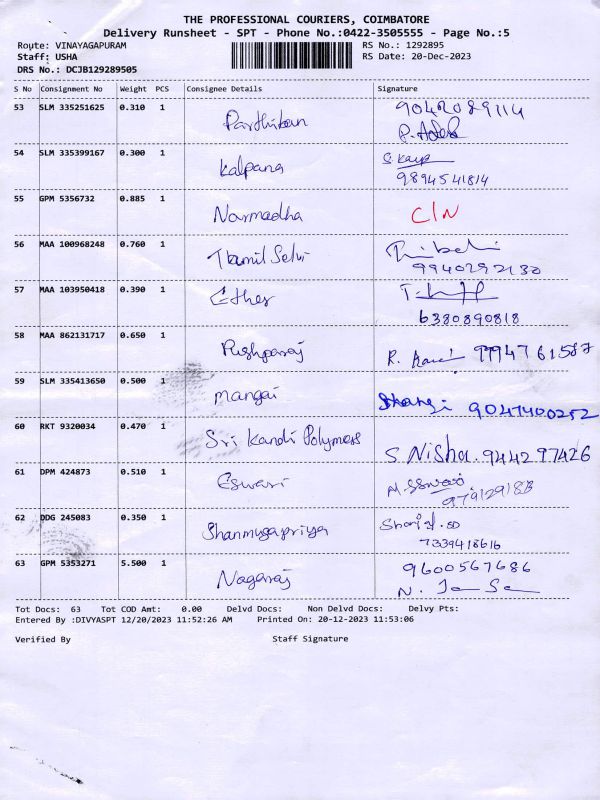 THE PROFESSIONAL COURIERS, COIMBATORE
Delivery Runsheet - SPT - Phone No.:0422-3505555 - Page No.:5
Route: VINAYAGAPURAM RS No.: 1292895
Staff: USHA RS Date: 20-Dec-2023
DRS No.: DCJB129289505
S No Consignment No Weight PCS Consignee Details Signature
53 SLM 335251625 0.310 1 Parthiban 9042089114
54 SLM 335399167 0.300 1 Kalpana S. Kalp
9894541814
55 GPM 5356732 0.885 1 Narmadha C/N
56 MAA 100968248 0.760 1 Thamil Selvi
9940292130
57 MAA 103950418 0.390 1 Esther
6380890818
58 MAA 862131717 0.650 1 Pushparaj R. 9994761587
59 SLM 335413650 0.500 1 Mangai 9047400252
60 RKT 9320034 0.470 1 Sri Kandi Polymers S. Nisha. 944297426
61 DPM 424873 0.510 1 Eswari
62 DDG 245083 0.350 1 Shanmugapriya
7339418616
63 GPM 5353271 5.500 1 Nagaraj 9600567686
Tot Docs: 63 Tot COD Amt: 0.00 Delvd Docs: Non Delvd Docs: Delvy Pts:
Entered By :DIVYASPT 12/20/2023 11:52:26 AM Printed On: 20-12-2023 11:53:06
Verified By Staff Signature